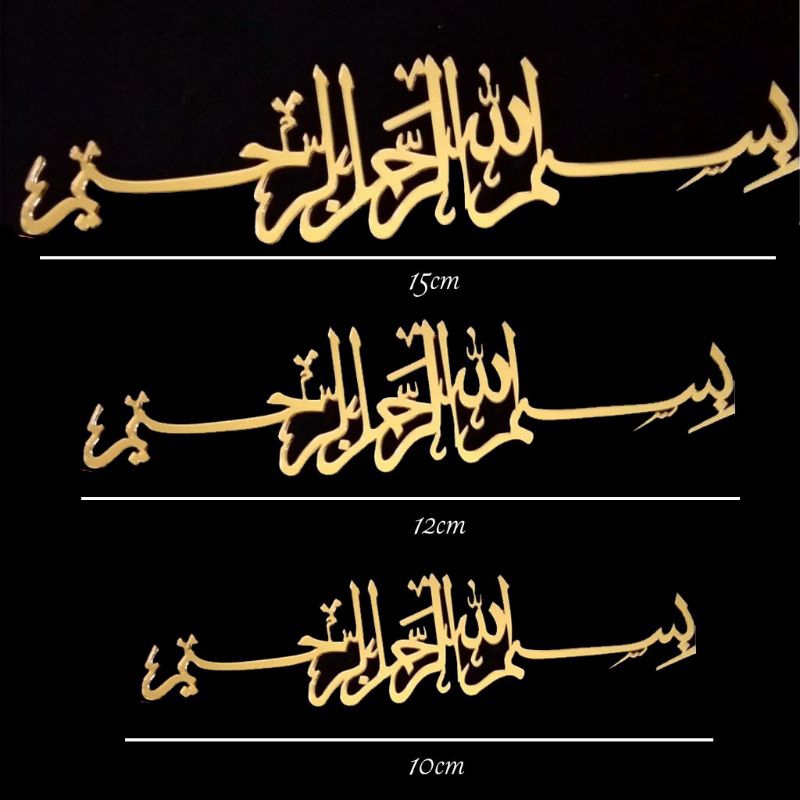 بسم الله الرحمن الرحيم
15cm
بسم الله الرحمن الرحيم
12cm
بسم الله الرحمن الرحيم
10cm